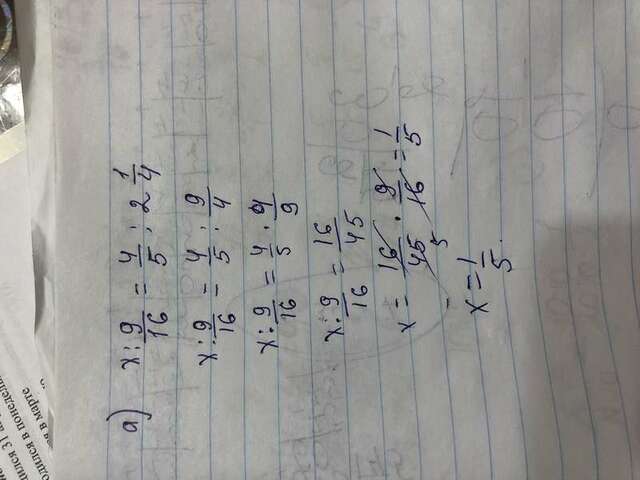 дился 31 а
одился в понедель
ся в марте
а) x : 9/16 = 4/5 : 2 1/4
x : 9/16 = 4/5 : 9/4
x : 9/16 = 4/5 · 4/9
x : 9/16 = 16/45
x = 16/45 · 9/16 = 1/5
5
x = 1/5.